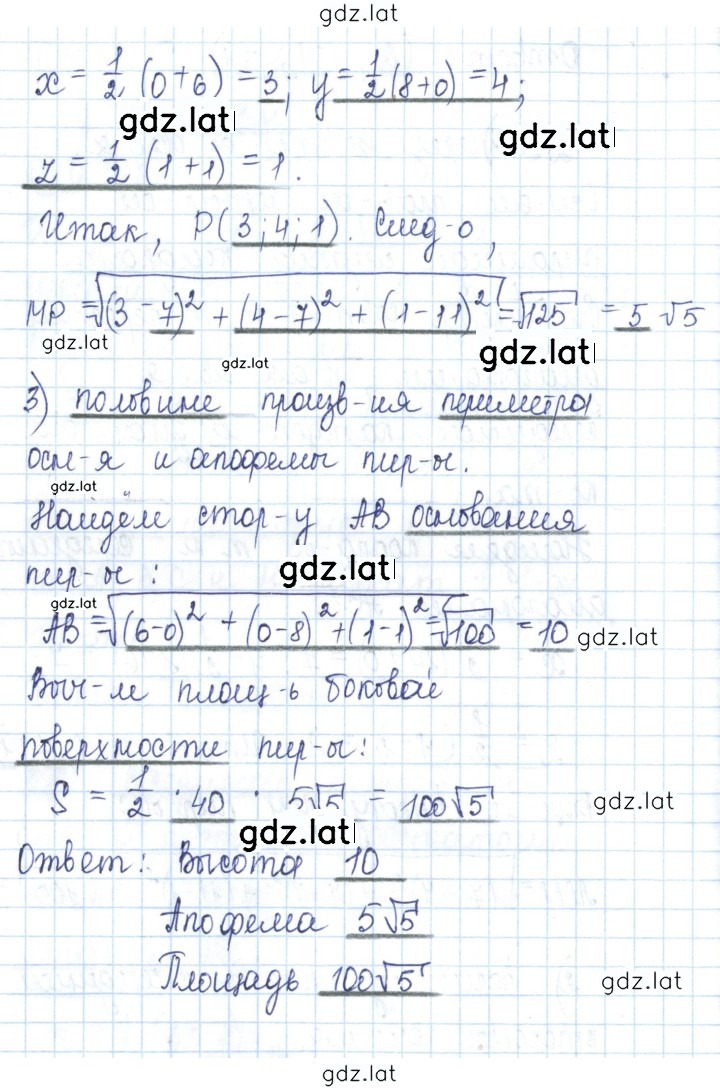 gdz.lat
x = 1/2 (0+6) = 3; y = 1/2 (8+0) = 4;
gdz.lat
gdz.lat
z = 1/2 (1+1) = 1.
Итак, P(3;4;1). След-о,
MP = √((3-7)² + (4-7)² + (1-11)²) = √125 = 5√5
gdz.lat
gdz.lat
gdz.lat
3) половине произв-ия периметра
осн-я и апофемы пир-ы.
gdz.lat
Найдём стор-у AB основания
пир-ы:
gdz.lat
gdz.lat
AB = √((6-0)² + (0-8)² + (1-1)²) = √100 = 10
gdz.lat
Выч-ле площ-ь боковой
поверхности пир-ы:
S = 1/2 · 40 · 5√5 = 100√5
gdz.lat
gdz.lat
Ответ: Высота 10
Апофема 5√5
Площадь 100√5
gdz.lat
gdz.lat